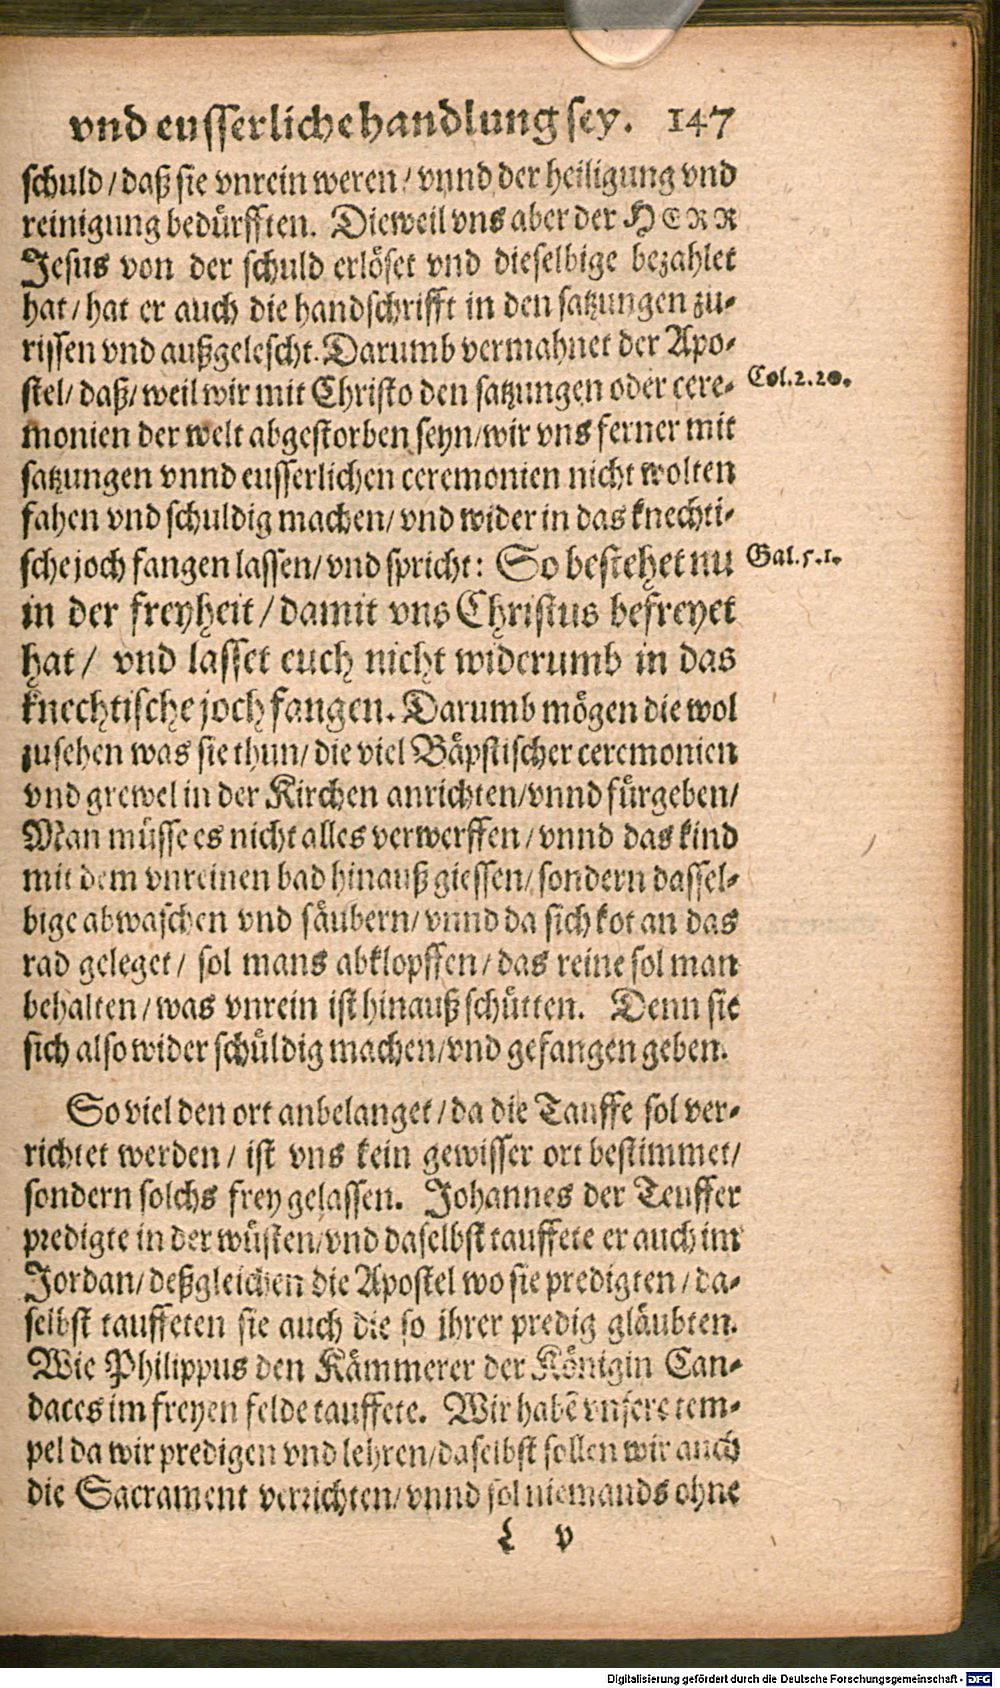 vnd eusserliche handlung sey. 147
schuld / daß sie vnrein weren / vnnd der heiligung vnd
reinigung bedürfften. Dieweil vns aber der HERR
Jesus von der schuld erlöset vnd dieselbige bezahlet
hat / hat er auch die handschrifft in den satzungen zu-
rissen vnd außgelescht. Darumb vermahnet der Apo-
stel / daß / weil wir mit Christo den satzungen oder cere- Col. 2. 20.
monien der welt abgestorben seyn / wir vns ferner mit
satzungen vnnd eusserlichen ceremonien nicht wolten
fahen vnd schuldig machen / vnd wider in das knechti-
sche joch fangen lassen / vnd spricht: So bestehet nu Gal. 5. 1.
in der freyheit / damit vns Christus befreyet
hat / vnd lasset euch nicht widerumb in das
knechtische joch fangen. Darumb mögen die wol
zusehen was sie thun / die viel Bäpstischer ceremonien
vnd grewel in der Kirchen anrichten / vnnd fürgeben /
Man müsse es nicht alles verwerffen / vnnd das kind
mit dem vnreinen bad hinauß giessen / sondern dassel-
bige abwaschen vnd säubern / vnnd da sich kot an das
rad geleget / sol mans abklopffen / das reine sol man
behalten / was vnrein ist hinauß schütten. Denn sie
sich also wider schüldig machen / vnd gefangen geben.
So viel den ort anbelanget / da die Tauffe sol ver-
richtet werden / ist vns kein gewisser ort bestimmet /
sondern solchs frey gelassen. Johannes der Teuffer
predigte in der wüsten / vnd daselbst tauffete er auch im
Jordan / deßgleichen die Apostel wo sie predigten / da-
selbst tauffeten sie auch die so ihrer predig gläubten.
Wie Philippus den Kämmerer der Königin Can-
daces im freyen felde tauffete. Wir habē vnsere tem-
pel da wir predigen vnd lehren / daselbst sollen wir auch
die Sacrament verrichten / vnnd sol niemands ohne
L v
Digitalisierung gefördert durch die Deutsche Forschungsgemeinschaft - DFG